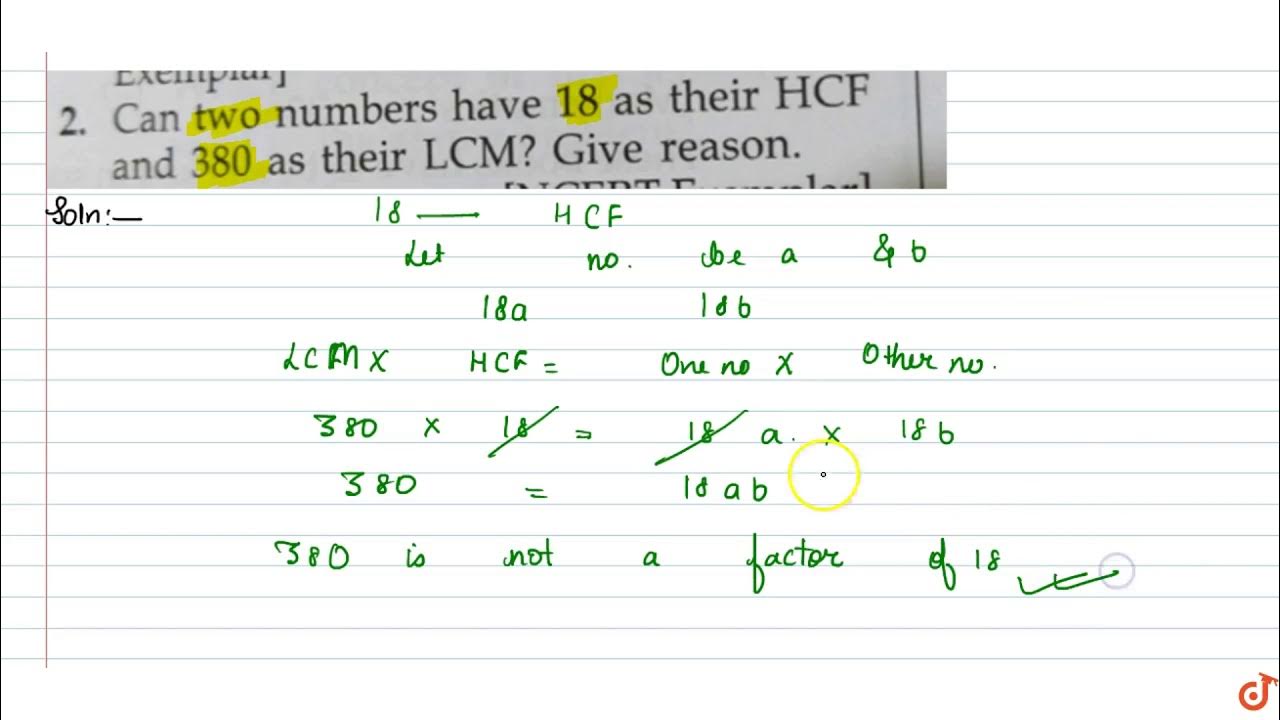 Exemplar]
2. Can two numbers have 18 as their HCF
and 380 as their LCM? Give reason.
[NCERT Exemplar]
Soln:—
18 — HCF
Let no. be a & b
18a 18b
LCM x HCF = One no x Other no.
380 x 18 = 18 a. x 18b
380 = 18ab
380 is not a factor of 18